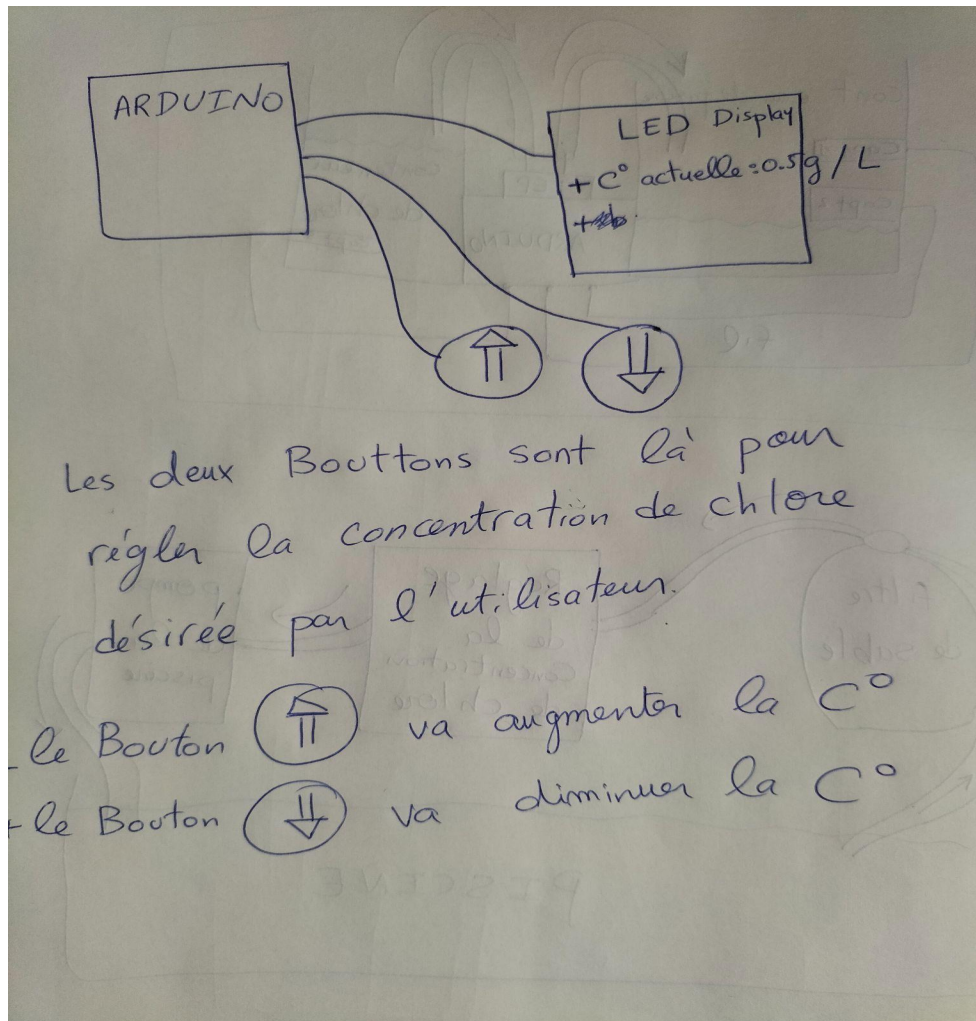 ARDUINO
LED Display
+ C° actuelle = 0.5g / L
+
Les deux Bouttons sont là pour
régler la concentration de chlore
désirée par l'utilisateur.
- le Bouton ⇑ va augmenter la C°
+ le Bouton ⇓ va diminuer la C°